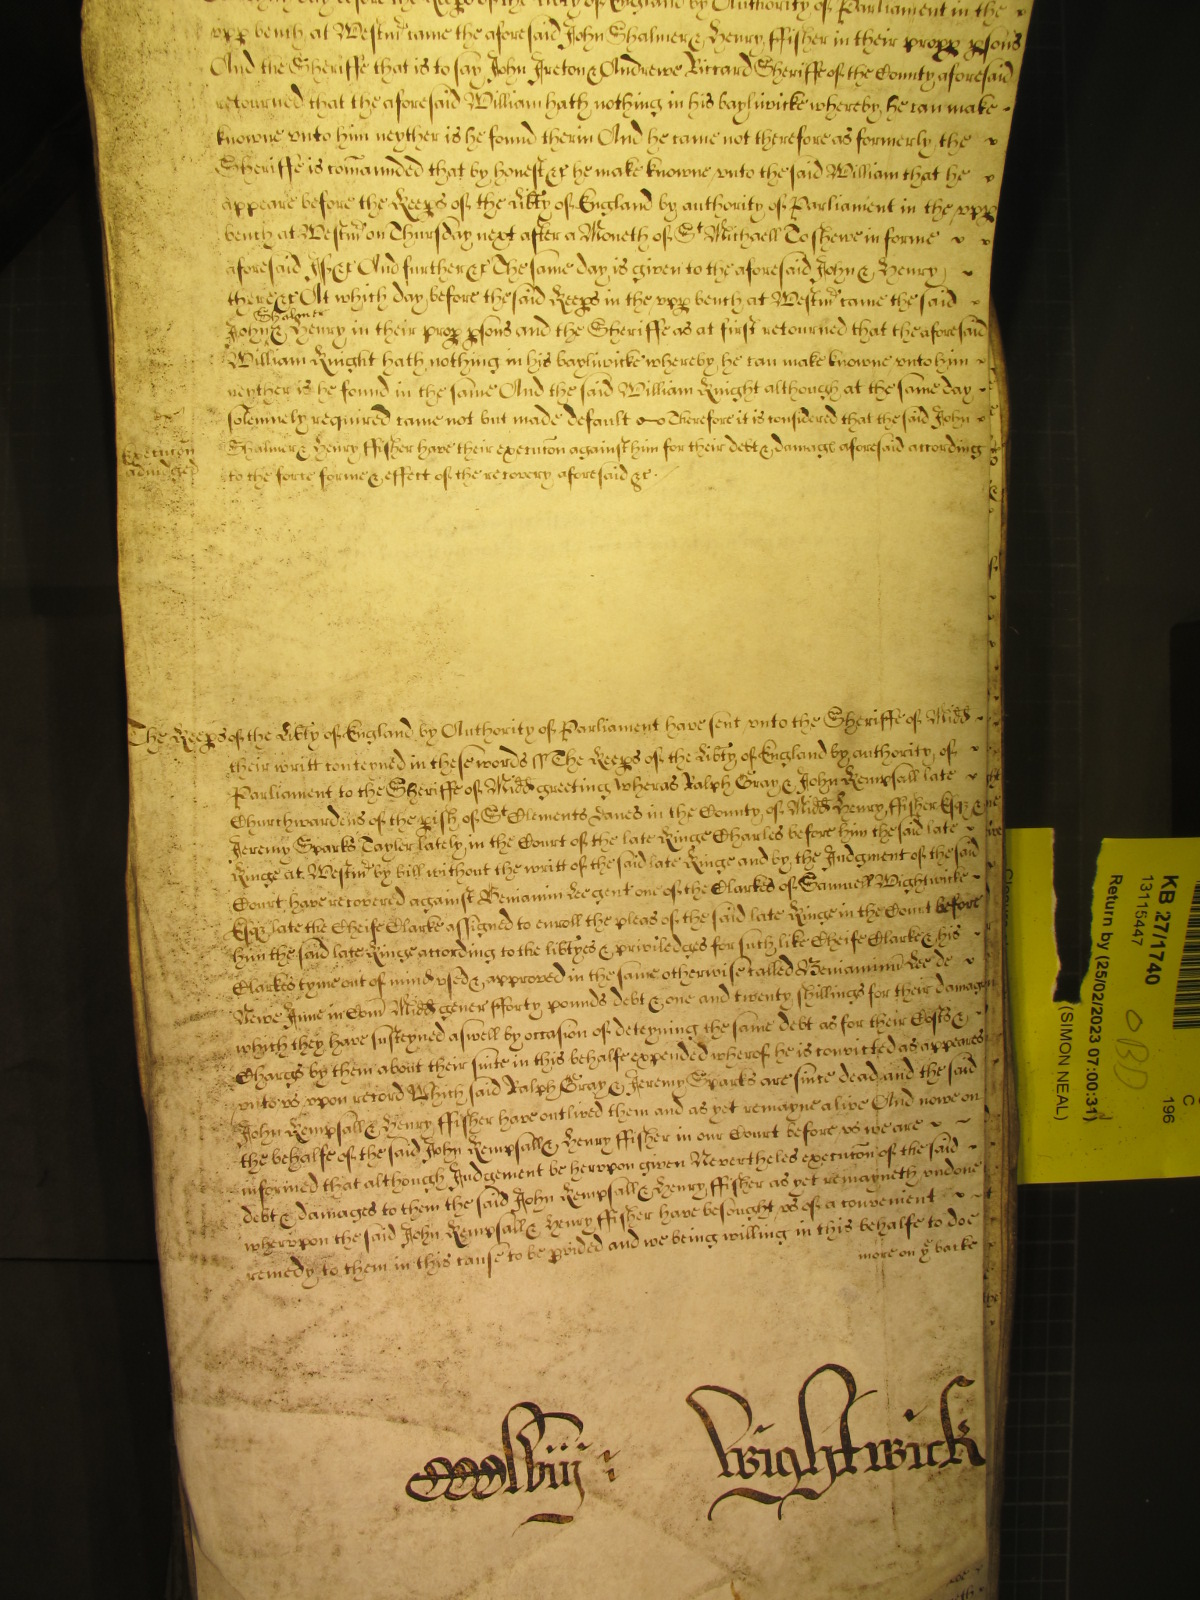 before the Keeps of the libty of England by Authority of Parliament in the
vpp bench at Westmr came the aforesaid John Shalmer & Henry ffisher in their propp psons
And the Sheriffe that is to say John Ireton & Andrewe Riccard Sheriffe of the County aforesaid
retourned that the aforesaid William hath nothing in his bayliwicke whereby he can make
knowne vnto him neyther is he found therin And he came not therefore as formerly the
Sheriffe is comannded that by honest &c he make knowne vnto the said William that he
appeare before the Keeps of the libty of England by authority of Parliament in the vpp
bench at Westmr on Thursday next after a Moneth of St Michaell To shewe in forme
aforesaid If &c And further &c The same day is given to the aforesaid John & Henry
there &c At which day before the said Keeps in the vpp bench at Westmr came the said
Shalmer
John & Henry in their prop psons and the Sheriffe as at first retourned that the aforesaid
William Knight hath nothing in his bayliwicke whereby he can make knowne vnto him
neyther is he found in the same And the said William Knight although at the same day
solemnely required came not but made default Therefore it is considered that the said John
Execution
adiudged
Shalmer & Henry ffisher have their execution against him for their debt & damags aforesaid according
to the force forme & effect of the recovery aforesaid &c.
The Keeps of the libty of England by Authority of Parliament have sent vnto the Sheriffe of Midd
their writt conteyned in these words ss The Keeps of the libty of England by authority of
Parliament to the Sheriffe of Midd greeting wheras Ralph Gray & John Kempsall late
Churchwardens of the pish of St Clements Danes in the County of Midd Henry ffisher Esqr &
Jeremy Sparks Taylor lately in the Court of the late Kinge Charles before him the said late
Kinge at Westmr by bill without the writt of the said late Kinge and by the Judgment of the said
Court have recovered against Beniamin Lee gent one of the Clarkes of Samuell Wightwicke
Esqr late the Cheife Clarke assigned to enroll the pleas of the said late Kinge in the Court before
him the said late Kinge according to the libtyes & priviledges for such like Cheife Clarke & his
Clarkes tyme out of mind vsed & approved in the same otherwise called Beniaminu Lee de
Newe Inne in Com Midd gener fforty pounds debt & one and twenty shillings for their damags
which they have susteyned aswell by occasion of deteyning the same debt as for their Costs &
Chargs by them about their suite in this behalfe expended wherof he is convicted as appeares
vnto vs vpon record Which said Ralph Gray & Jeremy Sparks are since dead and the said
John Kempsall & Henry ffisher have outlived them and as yet remayne alive And nowe on
the behalfe of the said John Kempsall & Henry ffisher in our Court before vs we are
informed that although Judgement be hervpon given Nevertheles execution of the said
debt & damages to them the said John Kempsall & Henry ffisher as yet remayneth vndone
whervpon the said John Kempsall & Henry ffisher have besought vs of a convenient
remedy to them in this cause to be pvided and we being willing in this behalfe to doe
more on ye backe
Wightwick
KB 27/1740
13115447
Return by (25/02/2023 07:00:31)
(SIMON NEAL)
C
196